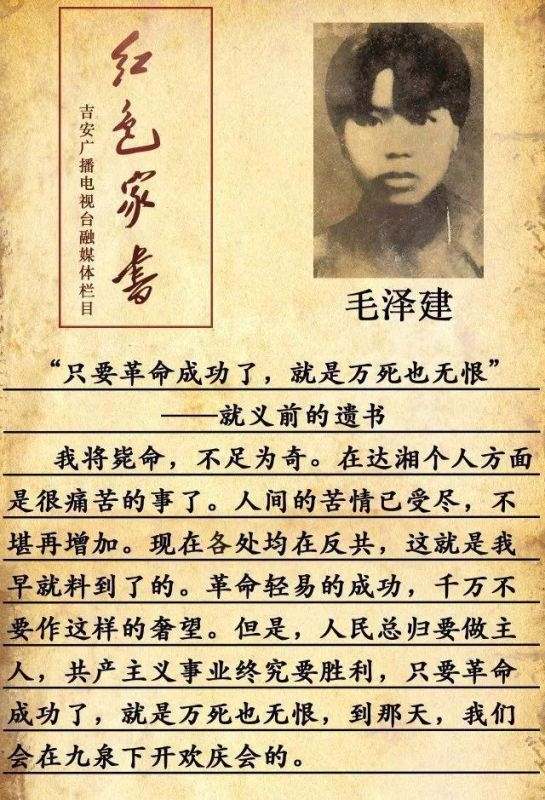 红色家书
吉安广播电视台融媒体栏目
毛泽建
“只要革命成功了，就是万死也无恨”
——就义前的遗书
我将毙命，不足为奇。在达湘个人方面
是很痛苦的事了。人间的苦情已受尽，不
堪再增加。现在各处均在反共，这就是我
早就料到了的。革命轻易的成功，千万不
要作这样的奢望。但是，人民总归要做主
人，共产主义事业终究要胜利，只要革命
成功了，就是万死也无恨，到那天，我们
会在九泉下开欢庆会的。